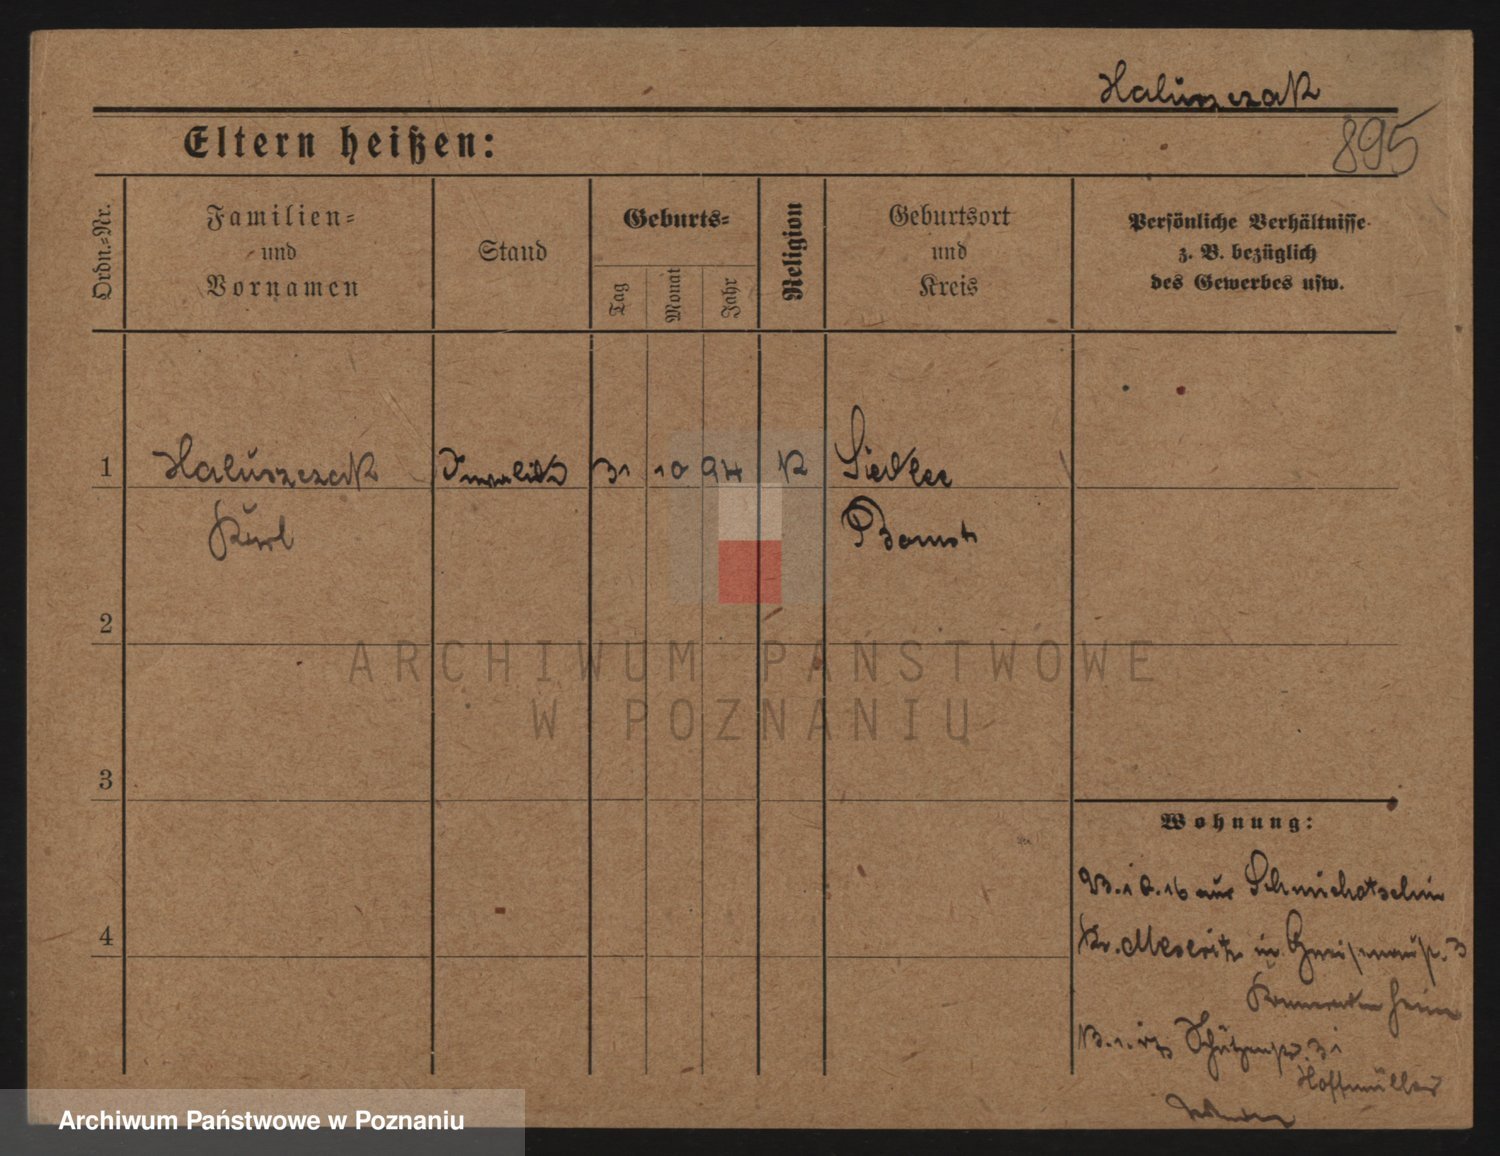 Haluszczak
895
Eltern heißen:
Ordn.=Nr.
Familien=
und
Vornamen
Stand
Geburts=
Tag
Monat
Jahr
Religion
Geburtsort
und
Kreis
Persönliche Verhältnisse
z. B. bezüglich
des Gewerbes usw.
1 Haluszczak Invalide 31 10 94 K Siedlec
Karl Bomst
2
ARCHIWUM PAŃSTWOWE
W POZNANIU
3
Wohnung:
10.16 aus
4
Kr. Meseritz in Gneisenaustr. 3
Schützenstr. 31
Hoffmüller
Archiwum Państwowe w Poznaniu